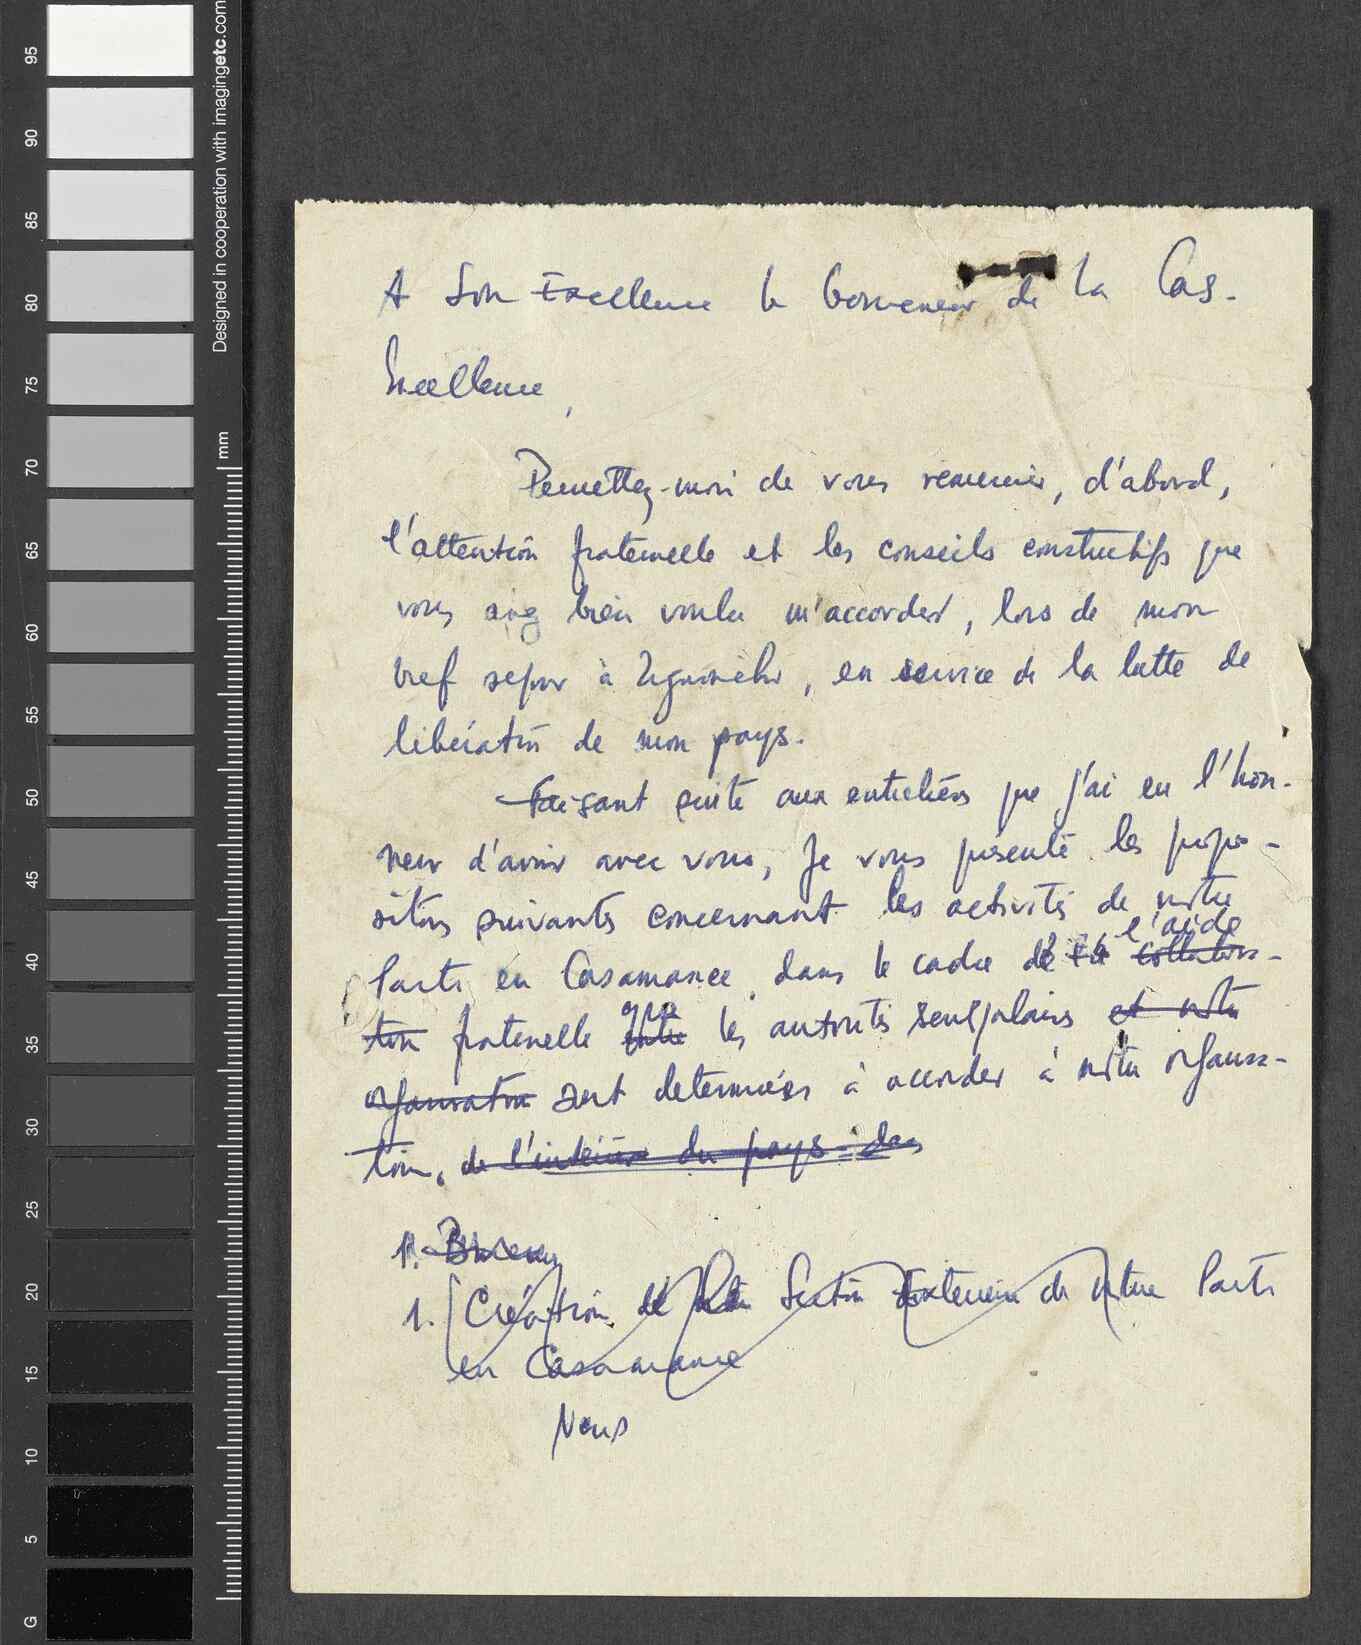 Designed in cooperation with imagingetc.com
mm
95
90
85
80
75
70
65
60
55
50
45
40
35
30
25
20
15
10
5
G
A Son Excellence le Gouverneur de la Cas.
Excellence,
Permettez-moi de vous remercier, d'abord,
l'attention fraternelle et les conseils constructifs que
vous avez bien voulu m'accorder, lors de mon
bref séjour à Ziguinchor, en service de la lutte de
libération de mon pays.
Faisant suite aux entretiens que j'ai eu l'hon-
neur d'avoir avec vous, je vous présente les propo-
sitions suivantes concernant les activités de notre
l'aide
Parti en Casamance, dans le cadre de la collabora-
que
tion fraternelle entre les autorités sénégalaises et notre
organisation sont déterminées à accorder à notre organisa-
tion. de l'intérieur du pays. dans
1. Bureau
1. Création de Section Extérieure de notre Parti
en Casamance
Nous